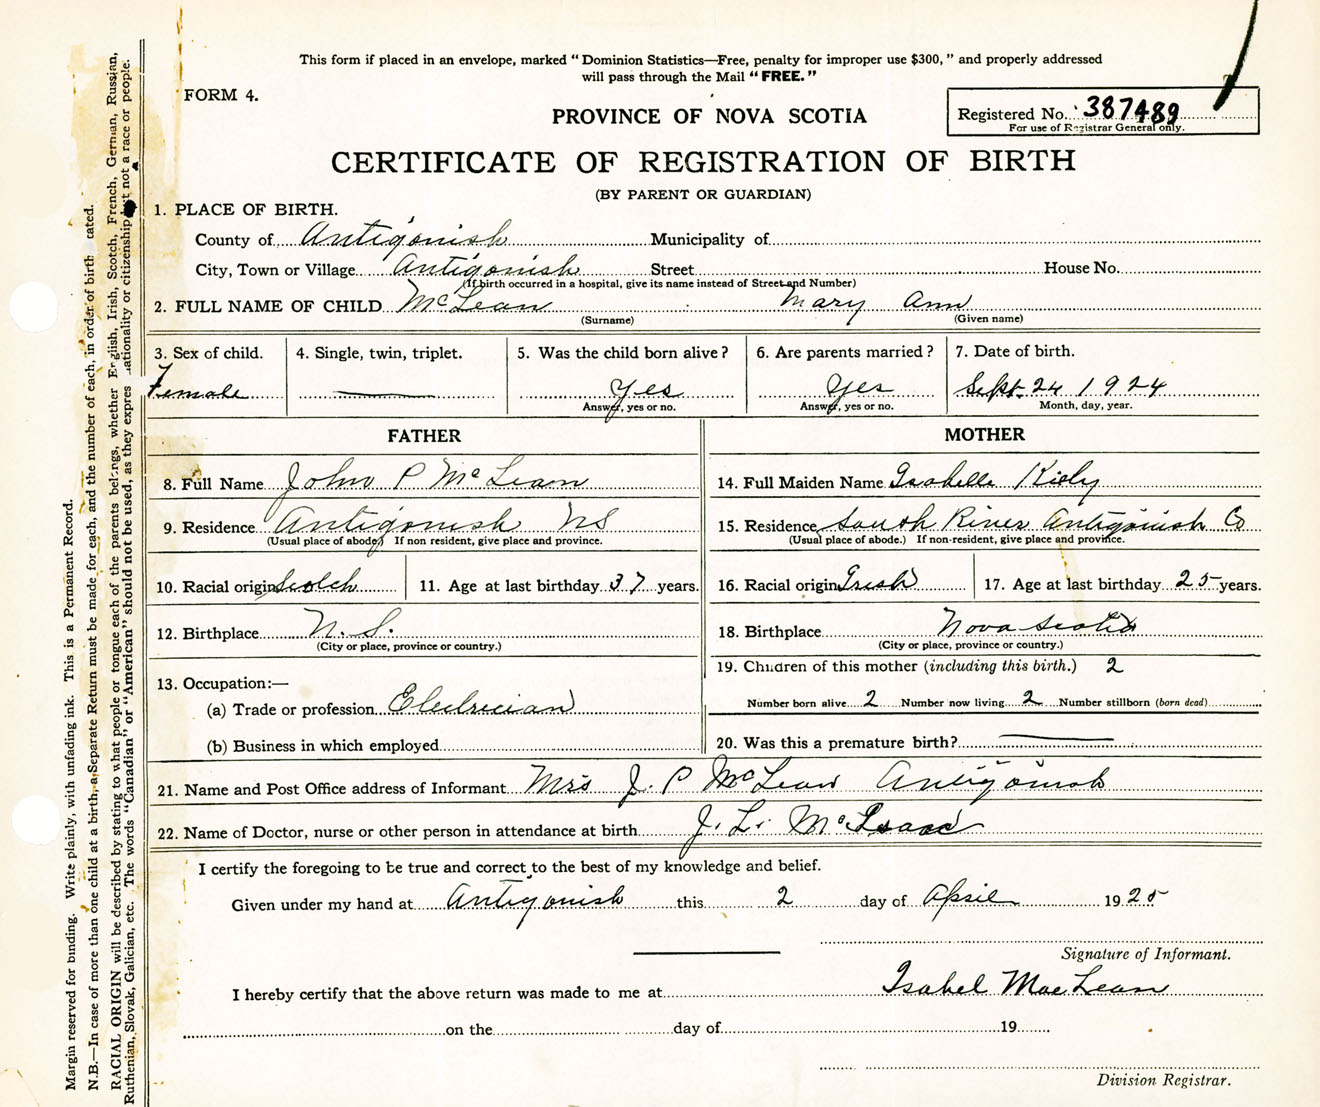 This form if placed in an envelope, marked “ Dominion Statistics—Free, penalty for improper use $300, ” and properly addressed
will pass through the Mail “ FREE. ”
FORM 4.
PROVINCE OF NOVA SCOTIA
Registered No. 387489
For use of Registrar General only.
CERTIFICATE OF REGISTRATION OF BIRTH
(BY PARENT OR GUARDIAN)
1. PLACE OF BIRTH.
County of Antigonish Municipality of
City, Town or Village Antigonish Street House No.
(If birth occurred in a hospital, give its name instead of Street and Number)
2. FULL NAME OF CHILD McLean Mary Ann
(Surname) (Given name)
3. Sex of child. 4. Single, twin, triplet. 5. Was the child born alive? 6. Are parents married? 7. Date of birth.
Female Yes Yes Sept. 24 1924
Answer, yes or no. Answer, yes or no. Month, day, year.
FATHER
8. Full Name John P McLean
9. Residence Antigonish NS
(Usual place of abode) If non resident, give place and province.
10. Racial origin Scotch 11. Age at last birthday 37 years.
12. Birthplace N.S.
(City or place, province or country.)
13. Occupation:—
(a) Trade or profession Electrician
(b) Business in which employed
MOTHER
14. Full Maiden Name Isabelle
15. Residence South River Antigonish Co
(Usual place of abode.) If non-resident, give place and province.
16. Racial origin Irish 17. Age at last birthday 25 years.
18. Birthplace Nova Scotia
(City or place, province or country.)
19. Children of this mother (including this birth.) 2
Number born alive 2 Number now living 2 Number stillborn (born dead)
20. Was this a premature birth?
21. Name and Post Office address of Informant Mrs J. P McLean Antigonish
22. Name of Doctor, nurse or other person in attendance at birth J. L. McIsaac
I certify the foregoing to be true and correct to the best of my knowledge and belief.
Given under my hand at Antigonish this 2 day of April 1925
Signature of Informant.
Isabel MacLean
I hereby certify that the above return was made to me at
on the day of 19
Division Registrar.
Margin reserved for binding. Write plainly, with unfading ink. This is a Permanent Record.
N.B.—In case of more than one child at a birth, a Separate Return must be made for each, and the number of each, in order of birth tated.
RACIAL ORIGIN will be described by stating to what people or tongue each of the parents belongs, whether English, Irish, Scotch, French, German, Russian,
Ruthenian, Slovak, Galician, etc. The words “Canadian” or “American” should not be used, as they expres ationality or citizenship but not a race or people.